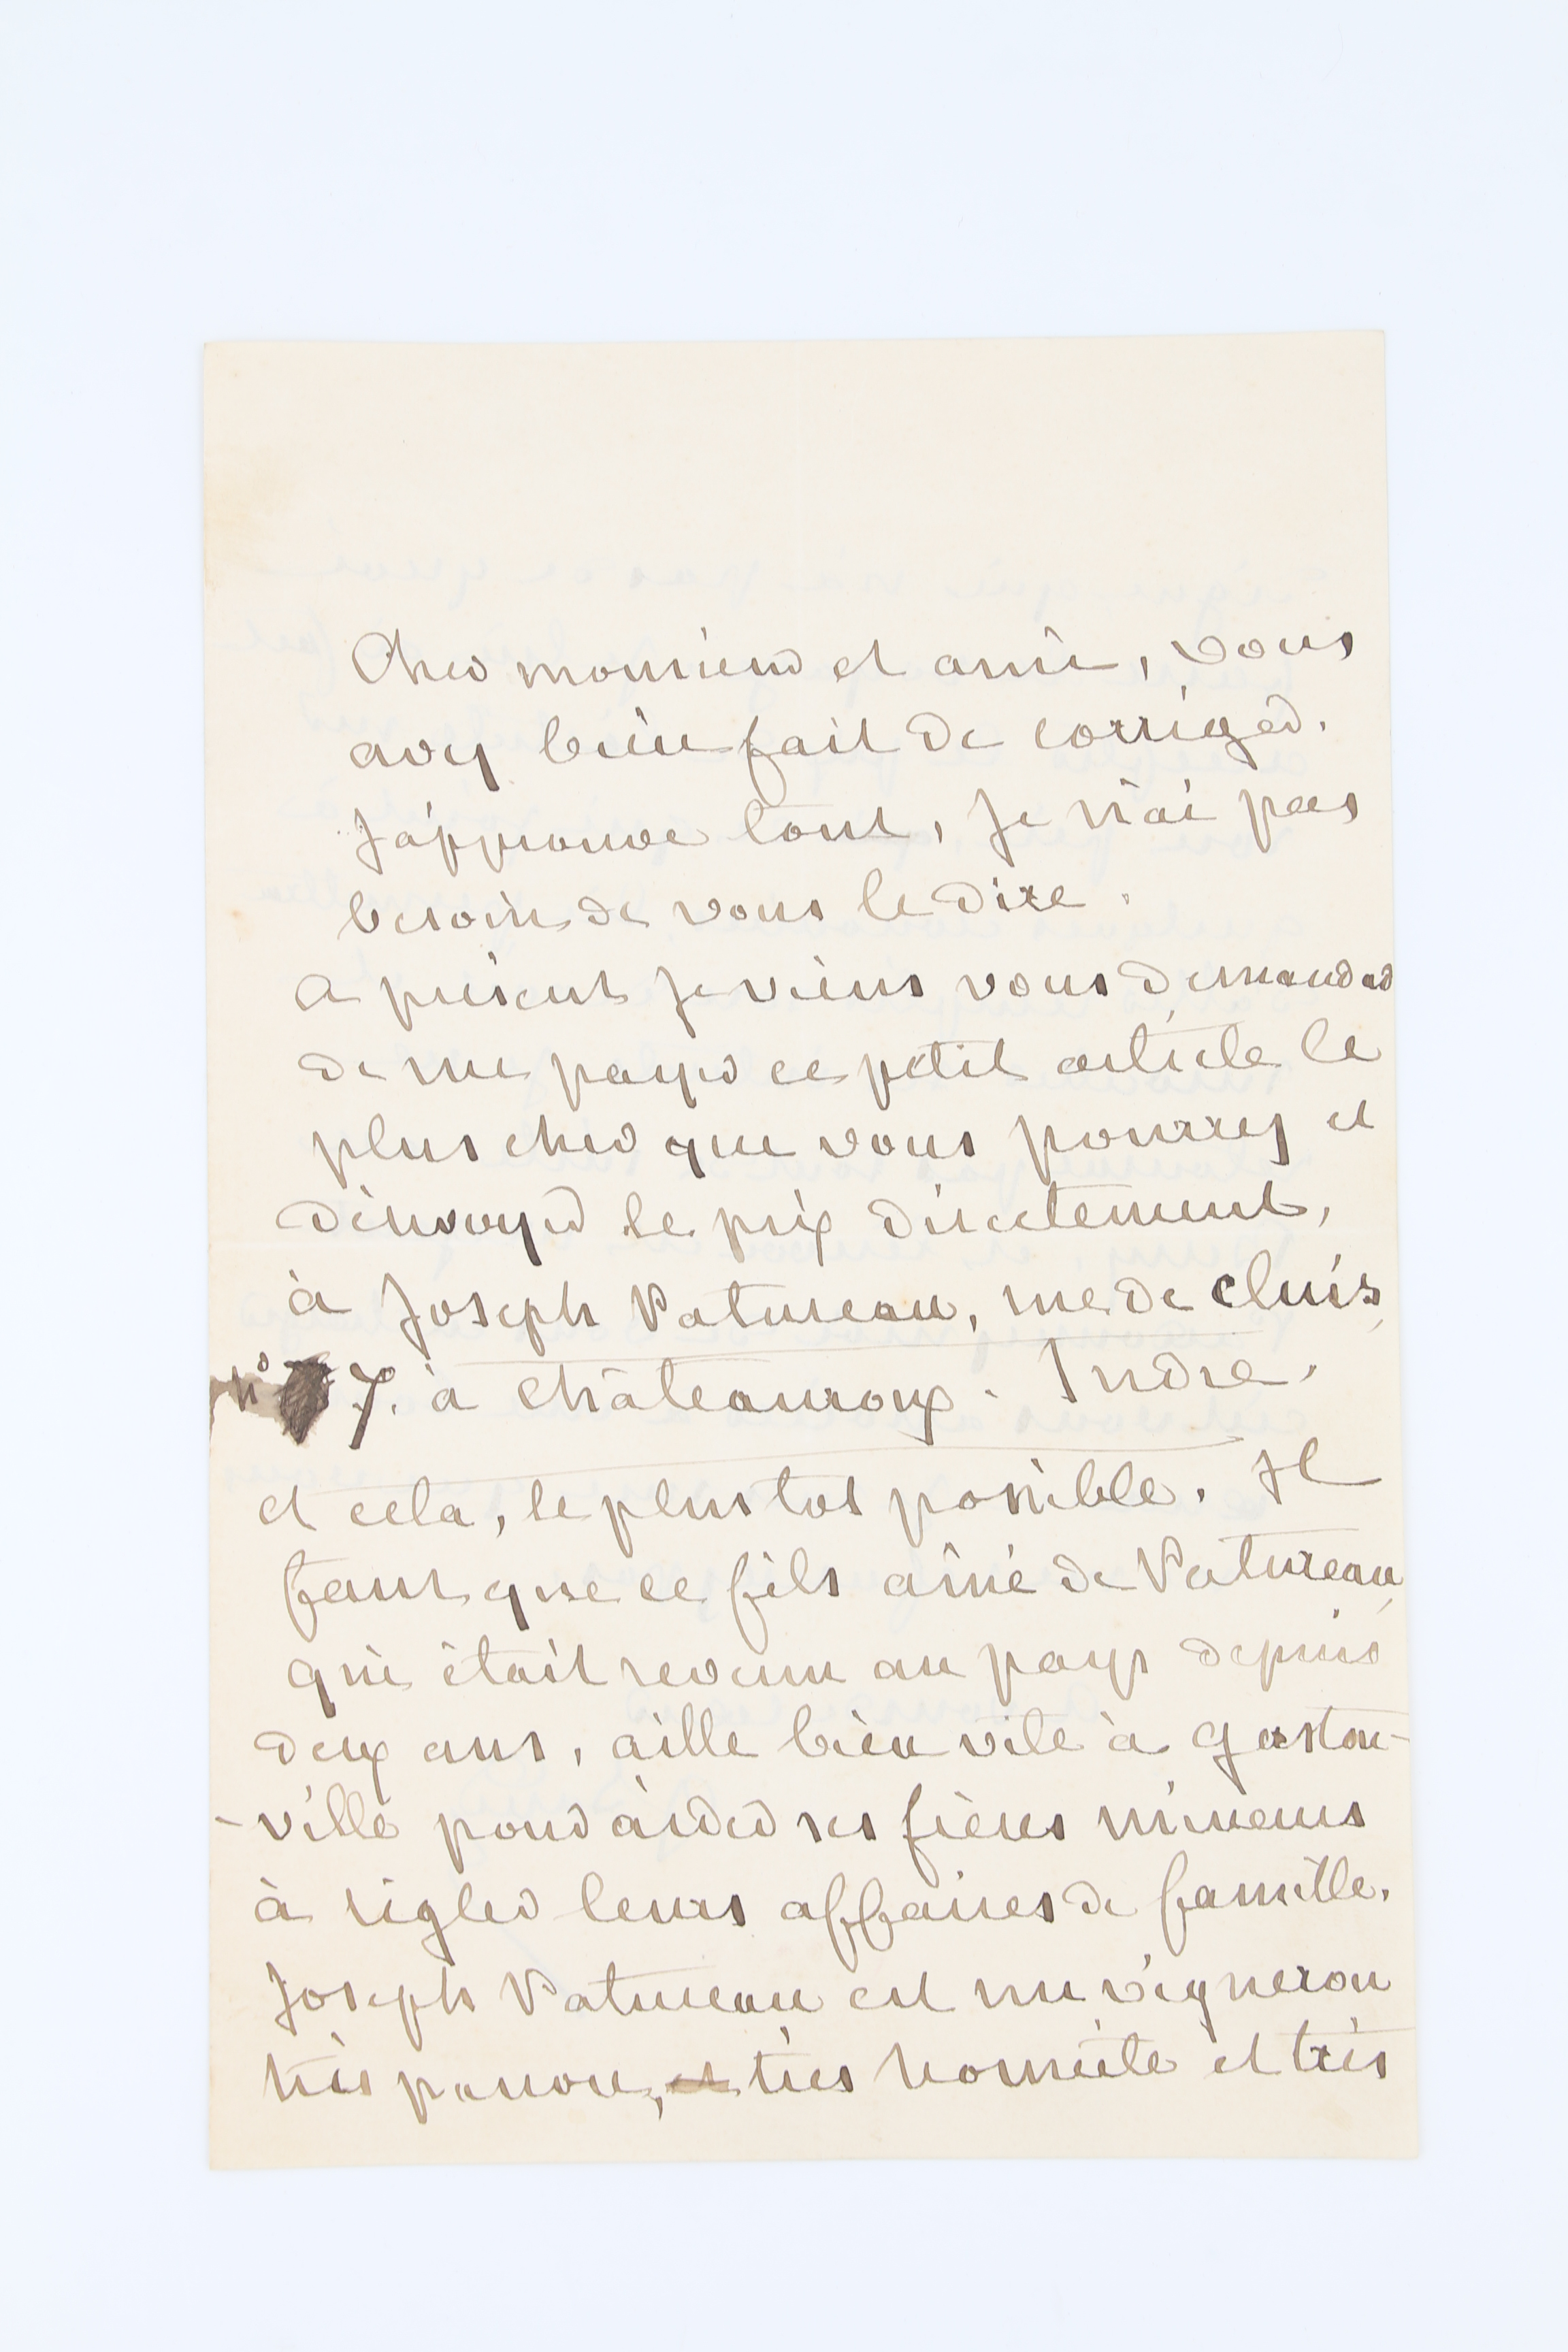 Cher monsieur et ami, vous
avez bien fait de corriger.
J'approuve tout, je n'ai pas
besoin de vous le dire.
a présent je viens vous demander
de me payer ce petit article le
plus cher que vous pourrez et
d'envoyer le prix directement,
à Joseph Patureau, rue de cluis,
n° 7. à Châteauroux. Indre.
et cela, le plus tot possible. Il
faut que ce fils aîné de Patureau,
qui était revenu au pays depuis
deux ans, aille bien vite à Gaston-
-ville pour aider ses frères mineurs
à régler leurs affaires de famille.
Joseph Patureau est un vigneron
très pauvre, très honnête et très